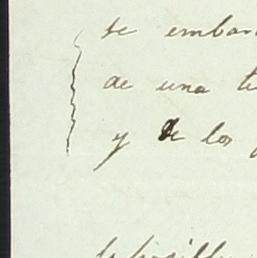 se embar
de una te
y de los